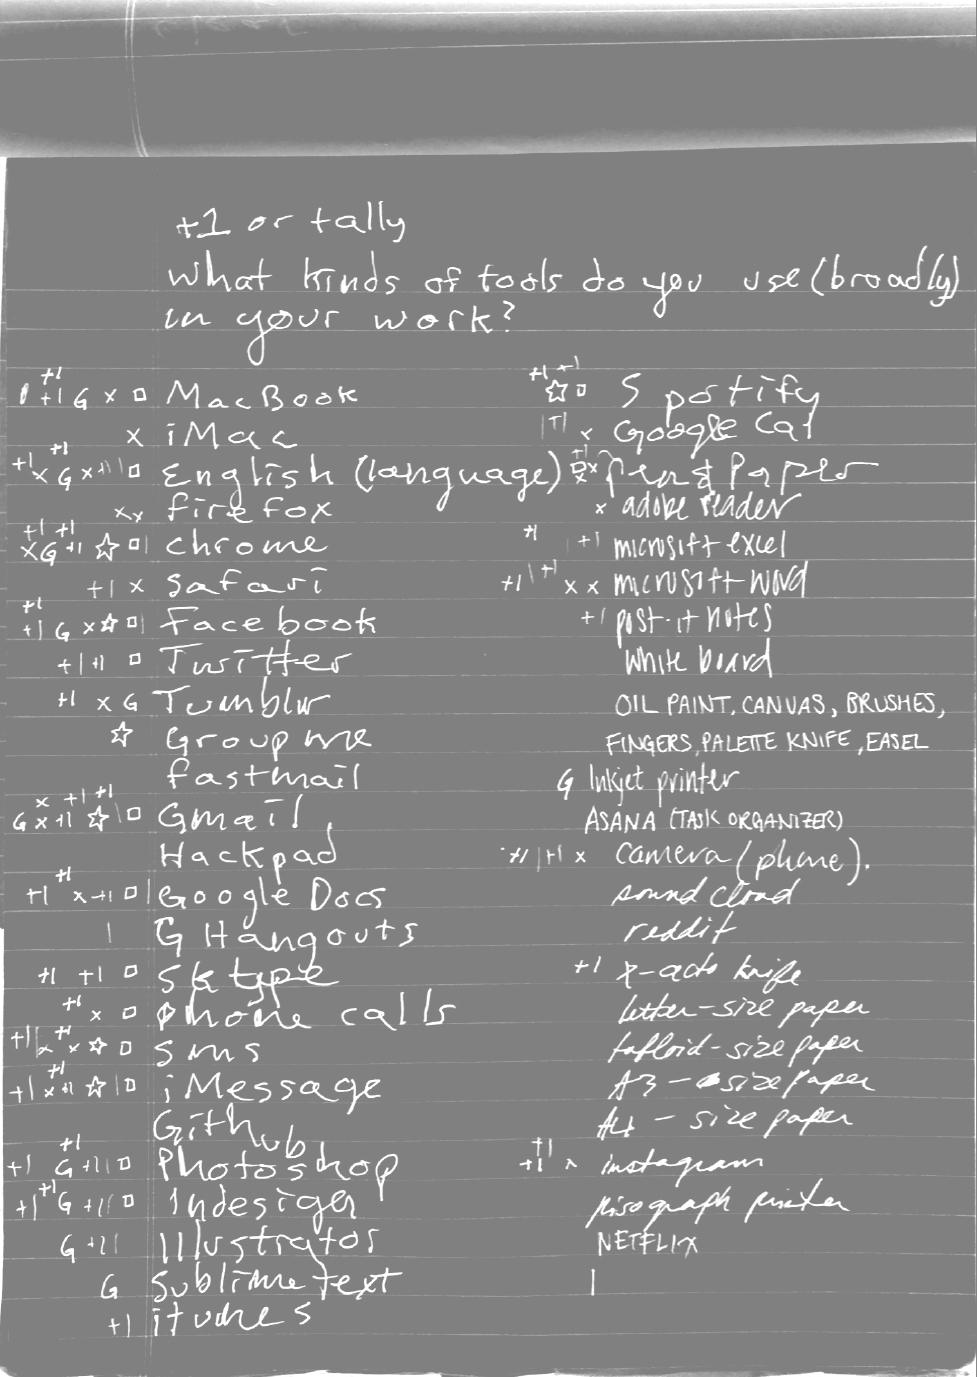 +1 or tally
What kinds of tools do you use (broadly)
in your work?
+1
+1 G x □ MacBook
x iMac
+1 +1
x G x +1 | □ English (language)
xx firefox
+1 +1
x G +1 ☆ □ | chrome
+1 x safari
+1
+1 G x ☆ □ | Facebook
+1 | +1 □ Twitter
+1 x G Tumblr
☆ Group me
fastmail
x +1 +1
G x +1 ☆ | □ Gmail
Hackpad
+1
+1 x +1 □ | Google Docs
| G Hangouts
+1 +1 □ Sktype
+1 x □ phone calls
+1 | +1 x x ☆ □ sms
+1
+1 x +1 ☆ | □ iMessage
Github
+1
+1 G +1 | □ Photoshop
+1 +1 G +1 | □ Indesign
G +1 | Illustrator
G Sublime text
+1 itunes
+1 +1
☆ □ Spotify
|+1 x Google Cal
+1 x Pen & Paper
x adobe reader
+1 | +1 microsift excel
+1 | +1 x x microsift word
+1 post-it notes
white board
OIL PAINT, CANVAS, BRUSHES,
FINGERS, PALETTE KNIFE, EASEL
G Inkjet printer
ASANA (TASK ORGANIZER)
+1 | +1 x camera (phone).
sound cloud
reddit
+1 x-acto knife
letter-size paper
tabloid-size paper
A3 - size paper
A4 - size paper
+1
+1 x instagram
risograph printer
NETFLIX
|